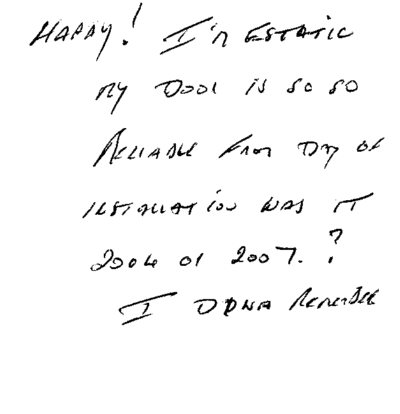 HAPPY! I'M ESTATIC
MY DOOR IS SO SO
RELIABLE FROM DAY OF
INSTALLATION WAS IT
2006 OR 2007.?
I DONA REMEMBER